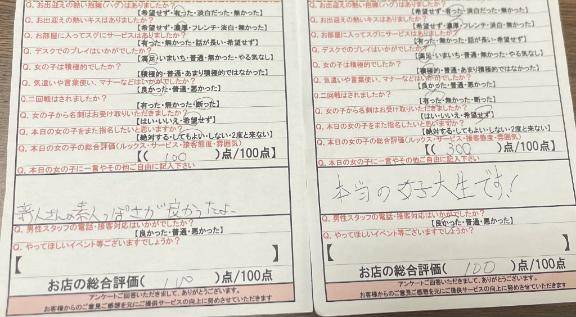 Q. お出迎えの熱い抱擁(ハグ)はありましたか?
【希望せず・有った・淡白だった・無かった】
Q. お出迎えの熱いキスはありましたか?
【希望せず・濃厚・フレンチ・淡白・無かった】
Q. お部屋に入ってスグにサービスはありましたか?
【有った・無かった・話が長い・希望せず】
Q. デスクでのプレイはいかがでしたか?
【満足・いまいち・普通・無かった・やる気なし】
Q. 女の子は積極的でしたか?
【積極的・普通・あまり積極的ではなかった】
Q. 気遣いや言葉使い、マナーなどはいかがでしたか?
【良かった・普通・悪かった】
Q. 二回戦はされましたか?
【有った・無かった・断った】
Q. 女の子から名刺はお受け取りいただきましたか?
【はい・いいえ・希望せず】
Q. 本日の女の子をまた指名したいと思いますか?
【絶対する・してもよい・しない・2度と来ない】
Q. 本日の女の子の総合評価(ルックス・サービス・接客態度・雰囲気)
【( 100 )点/100点】
Q. 本日の女の子に一言やその他ご自由に記入下さい
新人さんの素人っぽさが良かったよ
Q. 男性スタッフの電話・接客対応はいかがでしたか?
【良かった・普通・悪かった】
Q. やってほしいイベント等ございますでしょうか?
【 】
お店の総合評価( 100 )点/100点
アンケートご回答いただきまして、ありがとうございます。
お客様からのご意見ご感想を元にご提供サービスの向上に努めさせていただきます
Q. お出迎えの熱い抱擁(ハグ)はありましたか?
【希望せず・有った・淡白だった・無かった】
Q. お出迎えの熱いキスはありましたか?
【希望せず・濃厚・フレンチ・淡白・無かった】
Q. お部屋に入ってスグにサービスはありましたか?
【有った・無かった・話が長い・希望せず】
Q. デスクでのプレイはいかがでしたか?
【満足・いまいち・普通・無かった・やる気なし】
Q. 女の子は積極的でしたか?
【積極的・普通・あまり積極的ではなかった】
Q. 気遣いや言葉使い、マナーなどはいかがでしたか?
【良かった・普通・悪かった】
Q. 二回戦はされましたか?
【有った・無かった・断った】
Q. 女の子から名刺はお受け取りいただきましたか?
【はい・いいえ・希望せず】
Q. 本日の女の子をまた指名したいと思いますか?
【絶対する・してもよい・しない・2度と来ない】
Q. 本日の女の子の総合評価(ルックス・サービス・接客態度・雰囲気)
【( 300 )点/100点】
Q. 本日の女の子に一言やその他ご自由に記入下さい
本当の女子大生です!
Q. 男性スタッフの電話・接客対応はいかがでしたか?
【良かった・普通・悪かった】
Q. やってほしいイベント等ございますでしょうか?
【 】
お店の総合評価( 100 )点/100点
アンケートご回答いただきまして、ありがとうございます。
お客様からのご意見ご感想を元にご提供サービスの向上に努めさせていただきます